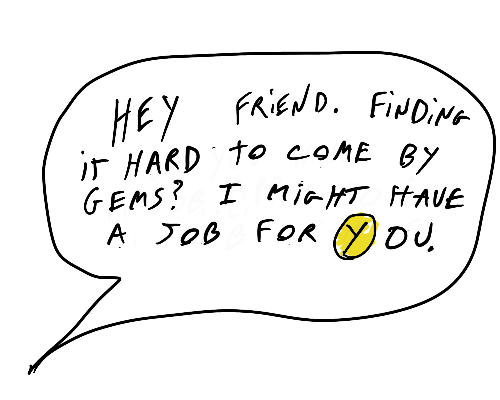 HEY FRiEND. FiNDiNG
iT HARD TO COME BY
GEMS? I MiGHT HAVE
A JOB FOR YOU.